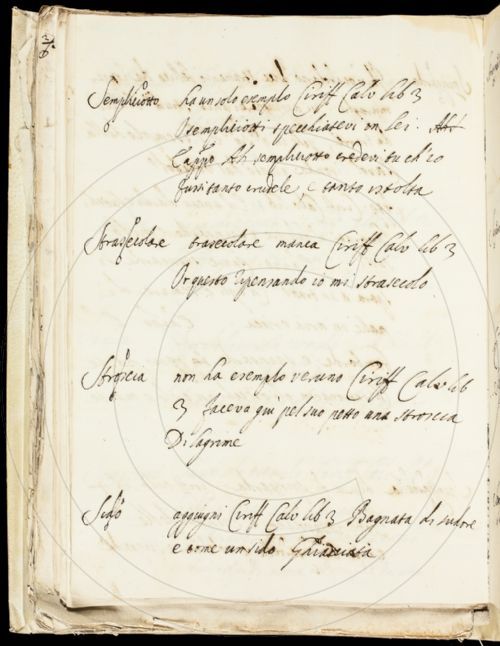 Sempliciotto ha un solo esemplo Ciriff Calv lib 3
O sempliciotti specchiatevi in lei.
Ah sempliciotto credevi tu ch'io
fussi tanto crudele, e tanto
Strasecolare trasecolare manca Ciriff Calv lib 3
Or questo ripensando io mi strasecolo.
Stroscia non ha esemplo veruno Ciriff Calv lib
3 Faceva giù pel suo petto una stroscia
Di lagrime
Sido aggiugni Ciriff Calv lib 3 Bagnata di sudore
e come un sido Ghiacciata